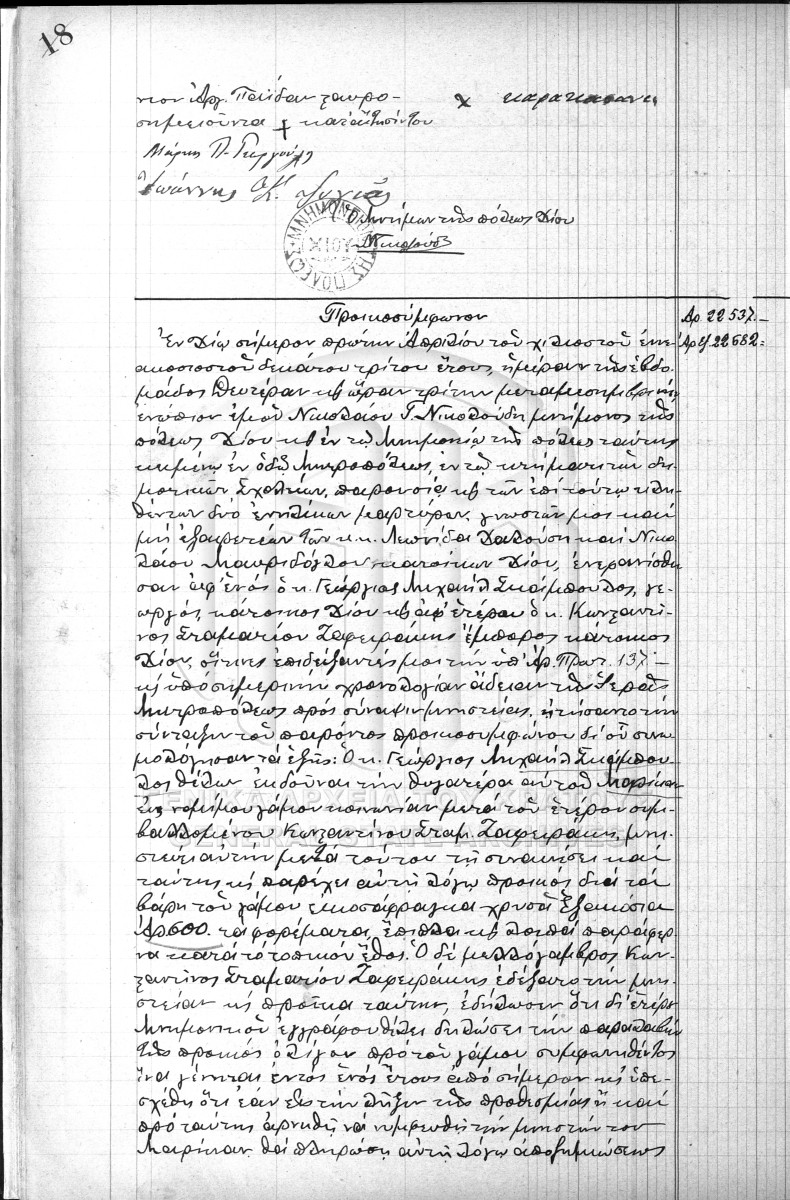 18
σημειοῦντα + κατ' αἴτησίν του
Ἰωάννης
Ὁ Μνήμων τῆς πόλεως Χίου
ΜΝΗΜΟΝΕΙΟΝ ΤΗΣ ΠΟΛΕΩΣ ΧΙΟΥ
Προικοσύμφωνον Ἀρ. 22537.—
Ἐν Χίῳ σήμερον πρώτην Ἀπριλίου τοῦ χιλιοστοῦ ἐννε- Ἀρ 22682=
ακοσιοστοῦ δεκάτου τρίτου ἔτους, ἡμέραν τῆς ἑβδο-
μάδος Δευτέραν κ ὥραν τρίτην μεταμεσημβρινήν
ἐνώπιον ἐμοῦ Νικολάου Γ. Νικολούδη μνήμονος τῆς
πόλεως Χίου κ ἐν τῷ Μνημονείῳ τῆς πόλεως ταύτης
κειμένῳ ἐν ὁδῷ Μητροπόλεως, ἐν τῷ κτήματι τῶν δη-
μοτικῶν Σχολείων, παρουσίᾳ κ τῶν ἐπὶ τούτῳ κλη-
θέντων δύο ἐνηλίκων μαρτύρων, γνωστῶν μοι καὶ
μὴ ἐξαιρετέων τῶν κ.κ. Λεωνίδα Χαλούση καὶ Νικο-
λάου Μαυριδόγλου κατοίκων Χίου, ἐνεφανίσθη-
σαν ἀφ' ἑνὸς ὁ κ. Γεώργιος Μιχαὴλ Σκάμπουλος, γε-
ωργός, κάτοικος Χίου κ ἀφ' ἑτέρου ὁ κ. Κωνσταντῖ-
νος Σταματίου Ζαφειράκης ἔμπορος κάτοικος
Χίου, οἵτινες ἐπιδείξαντές μοι τὴν ὑπ' Ἀρ. Πρωτ. 137
κ ὑπὸ σημερινὴν χρονολογίαν ἄδειαν τῆς Ἱερᾶς
Μητροπόλεως πρὸς σύναψιν μνηστείας, ᾐτήσαντο τὴν
σύνταξιν τοῦ παρόντος προικοσυμφώνου δι' οὗ συνω-
μολόγησαν τὰ ἑξῆς: Ὁ κ. Γεώργιος Μιχαὴλ Σκάμπου-
λος θέλων ἐκδοῦναι τὴν θυγατέρα αὐτοῦ Μαρίκαν
εἰς νομίμου γάμου κοινωνίαν μετὰ τοῦ ἑτέρου συμ-
βαλλομένου Κωνσταντίνου Σταμ. Ζαφειράκη, μνη-
στεύει αὐτὴν μετὰ τούτου τῇ συναινέσει καὶ
ταύτης κ παρέχει αὐτῇ λόγῳ προικὸς διὰ τὰ
βάρη τοῦ γάμου εἰκοσάφραγκα χρυσᾶ ἑξακόσια
Ἀρ 600 τὰ φορέματα, ἔπιπλα κ λοιπὰ παράφερ-
να κατὰ τὸ τοπικὸν ἔθος. Ὁ δὲ μελλόγαμβρος Κων-
σταντῖνος Σταματίου Ζαφειράκης ἐδέξατο τὴν μνη-
στείαν κ προῖκα ταύτην, ἐδήλωσεν ὅτι δι' ἑτέρου
Μνημονικοῦ ἐγγράφου θέλει δηλώσει τὴν παραλαβὴν
τῆς προικὸς ὀλίγον πρὸ τοῦ γάμου συμφωνηθέντος
ἵνα γένηται ἐντὸς ἑνὸς ἔτους ἀπὸ σήμερον κ ὑπε-
σχέθη ὅτι ἐὰν εἰς τὴν λῆξιν τῆς προθεσμίας ἢ καὶ
πρὸ ταύτης ἀρνηθῇ νὰ νυμφευθῇ τὴν μνηστήν του
Μαρίκαν, θὰ πληρώσῃ αὐτῇ λόγῳ ἀποζημιώσεως
ΓΕΝΙΚΑ ΑΡΧΕΙΑ ΤΟΥ ΚΡΑΤΟΥΣ
GENERAL STATE ARCHIVES